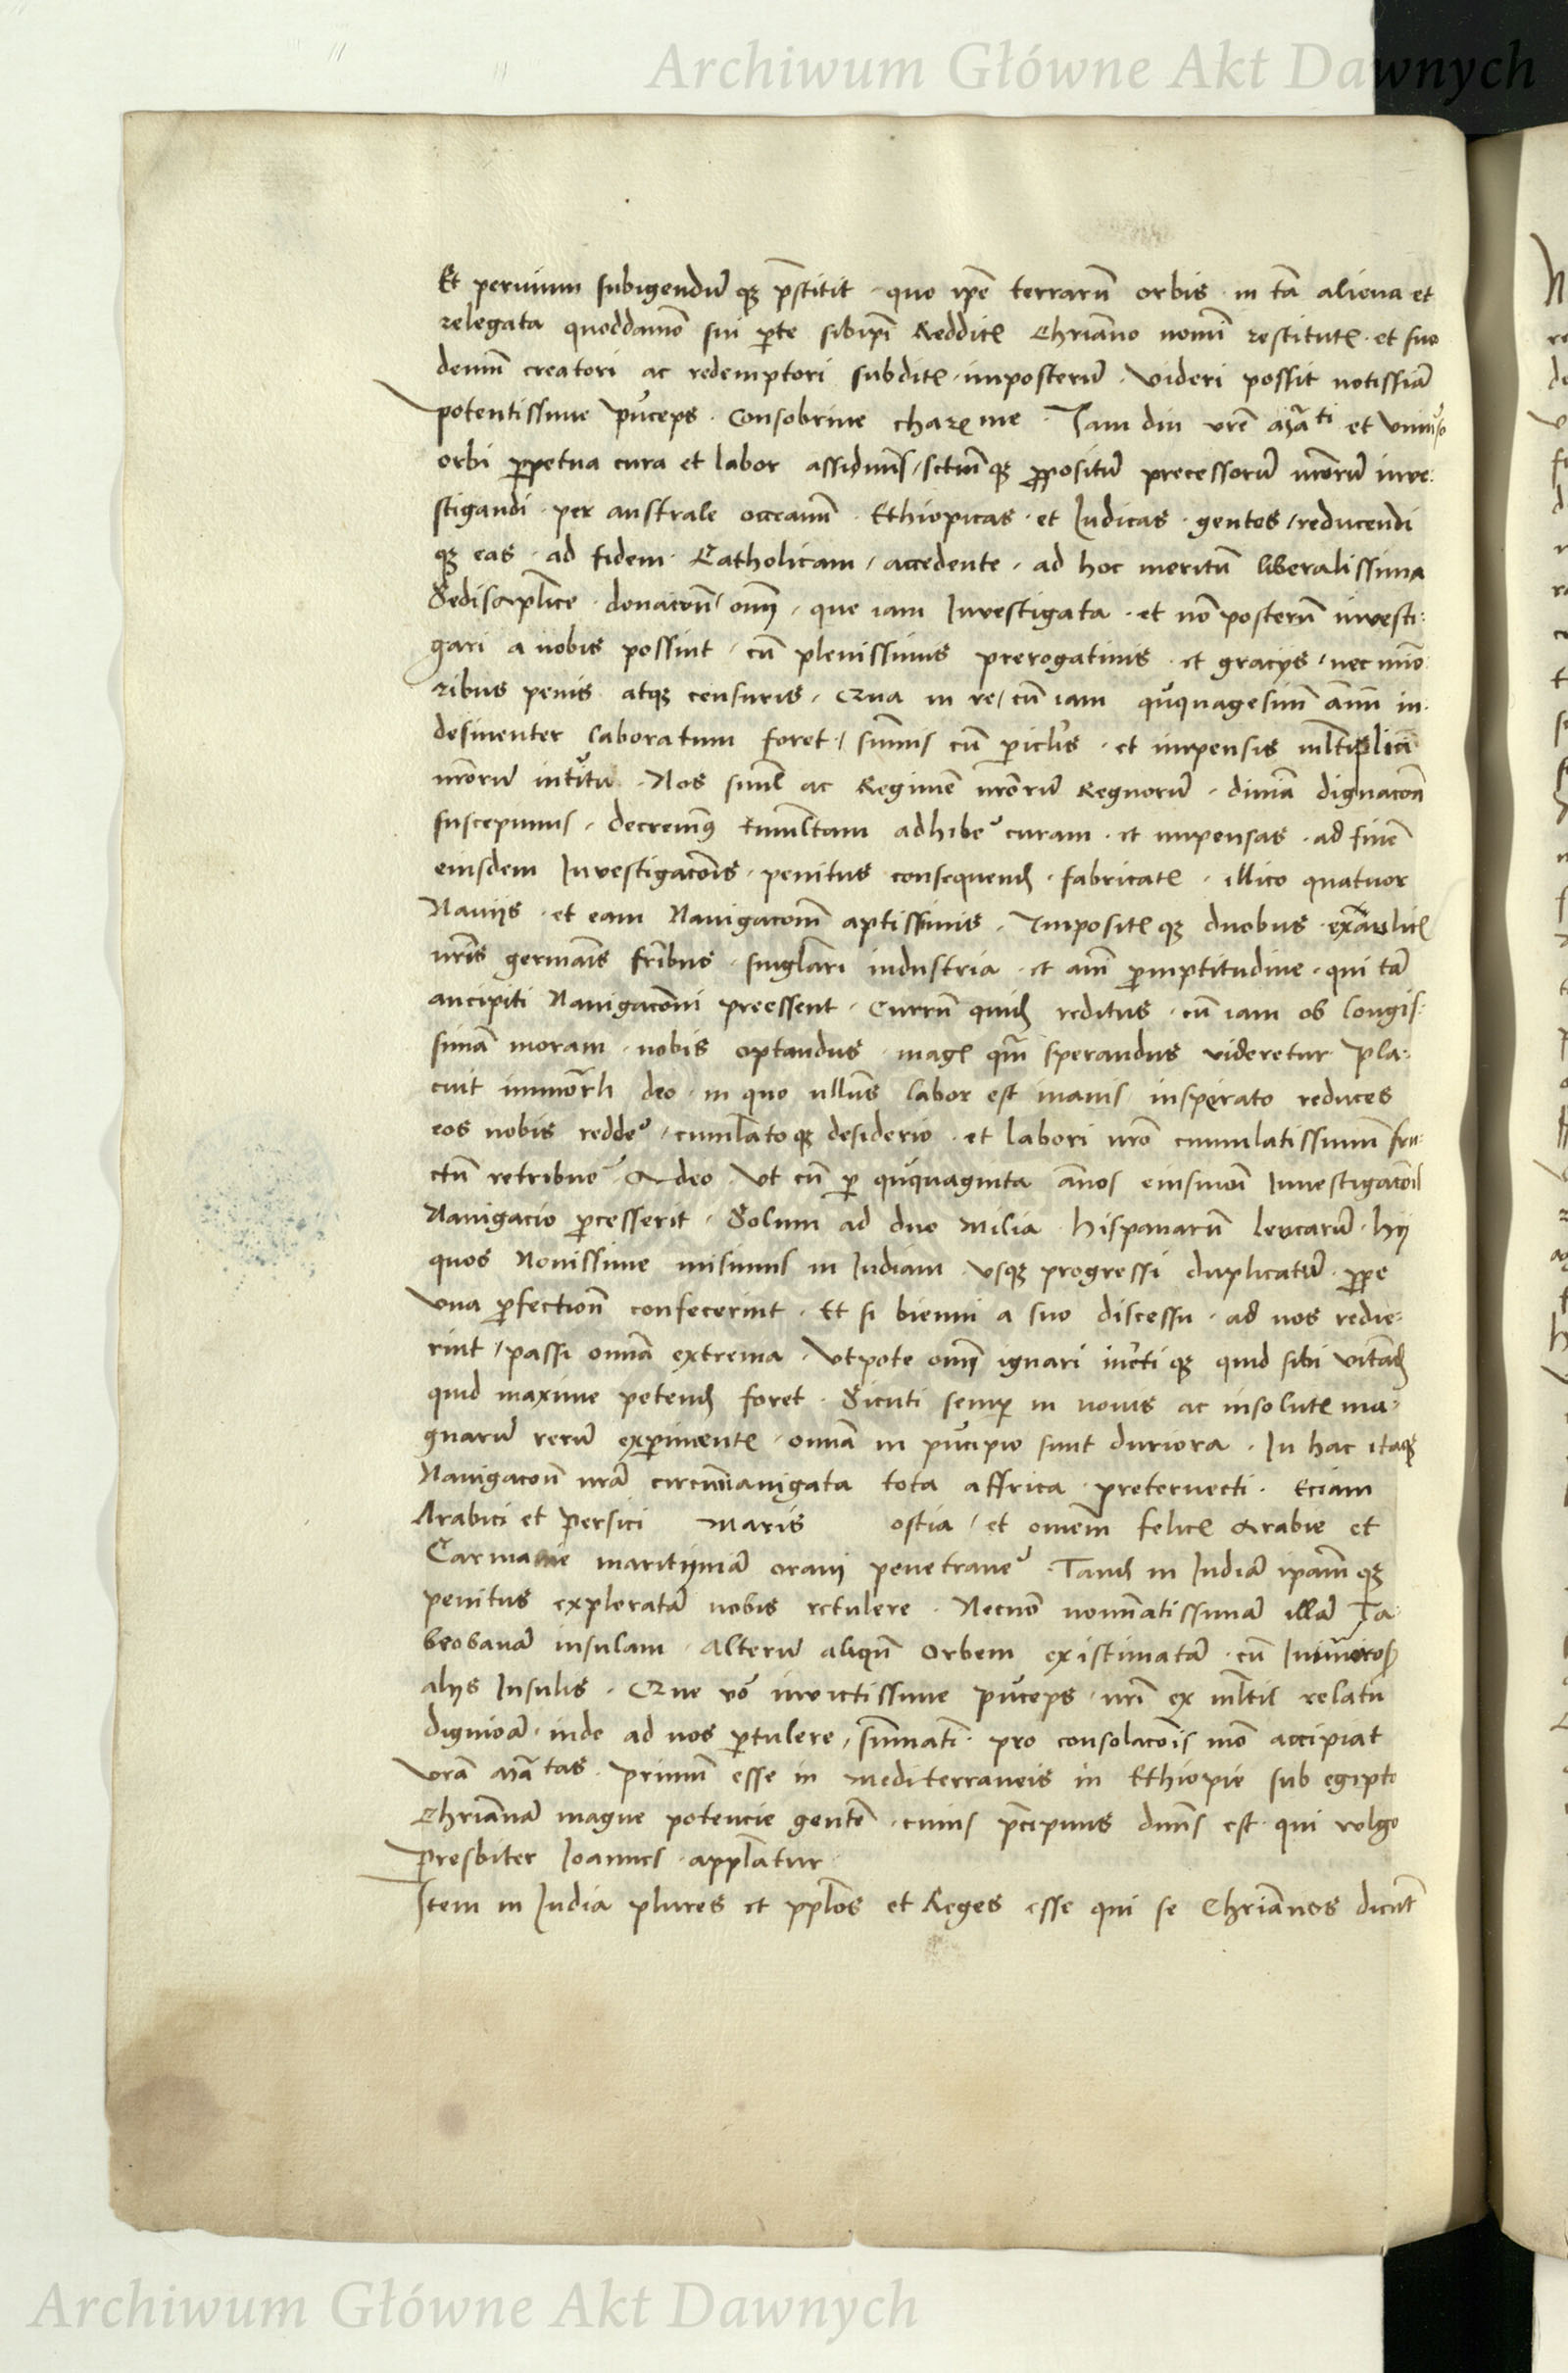 Archiwum Główne Akt Dawnych
Et pervium subigendū qȝ p̄stitit quo ip̄e terrarū orbis in tā aliena et
relegata quoddamō sui pte sibip̄i Reddit Chriāno nomī restitut et suo
demū creatori ac redemptori subdit imposterū videri possit notissiā
potentissime p̃nceps Consobrine chareme Iam diu vrē mãti et vniūso
orbi ppetua cura et labor assiduus sctmqȝ ppositū precessorū nrorū inve-
stigandi per australe occeanū Ethiopicas et Indicas gentes reducendi
qȝ eas ad fidem Catholicam accedente ad hoc meritū liberalissima
Sedis aplīce donacōn om̄ que iam Investigata et posterū investi-
gari a nobis possint cū plenissimis prerogativis et gracijs nec mino-
ribus penis atqȝ censuris Qua in re cū iam q̃nquagesimū annū in-
desinenter laboratum foret sūmis cū piclis et impensis mltiplici
nrorū intūitu Nos siml ac Regimē nrorū Regnorū divīa dignacōn
suscepimus decrevimus multam adhibe curam et impensas ad finē
eiusdem Investigacōis penitus consequend fabricat illico quatuor
Naviis et eam Navigacōnī aptissimis Impositqȝ duobus ex aulic
nrīs germanis frībus singlari industria et ani pmptitudine qui tā
ancipiti Navigacōni preessent Quorū quid reditus cū iam ob longis-
simā moram nobis optandus mag qm̄ sperandus videretur pla-
cuit immortli deo in quo nullus labor est inanis insperato reduces
eos nobis redde cumlatoqȝ desiderio et labori nro cumulatissimū fru-
ctū retribue Adeo vt cū p q̃nquaginta annos eiusmoi Investigacōis
Navigacio pcesserit Solum ad duo Milia hispanarū leucarū hij
quos Novissime misimus in Indiam vsqȝ progressi duplicatū ppe
vna pfectionē confecerint Et si bienni a suo discessu ad nos redie-
rint passi omīa extrema vtpote om̄ ignari incti qȝ quid sibi vitād
quid maxime petend foret Sicuti semp in novis ac insolut ma-
gnarū rerū expiment omīa in p̃ncipio sunt duriora In hac itaqȝ
Navigacōn nrā circumnavigata tota affrica pretervecti Eciam
Arabici et Persici Maris ostia et omem felic Arabie et
Carmanie maritimā oram penetrave Tand in Indiā ipamqȝ
penitus exploratā nobis retulere Necnō nominatissimā illā Ta-
beobanā insulam Alterū aliqn̄ Orbem existimatā cū Innumeros
alijs Insulis Que vō invictissime p̃nceps nrī ex mltis relatu
dignioā inde ad nos ptulere sūmatī pro consolacōis mō accipiat
vrā mãtas Primū esse in mediterraneis in Ethiopie sub egipto
Chriānā magne potencie gentē cuius p̄cipuus dūns est qui volgo
Presbiter Ioannes applātur
Item in India plures et pplos et Reges esse qui se Chriānos dicūt
Archiwum Główne Akt Dawnych